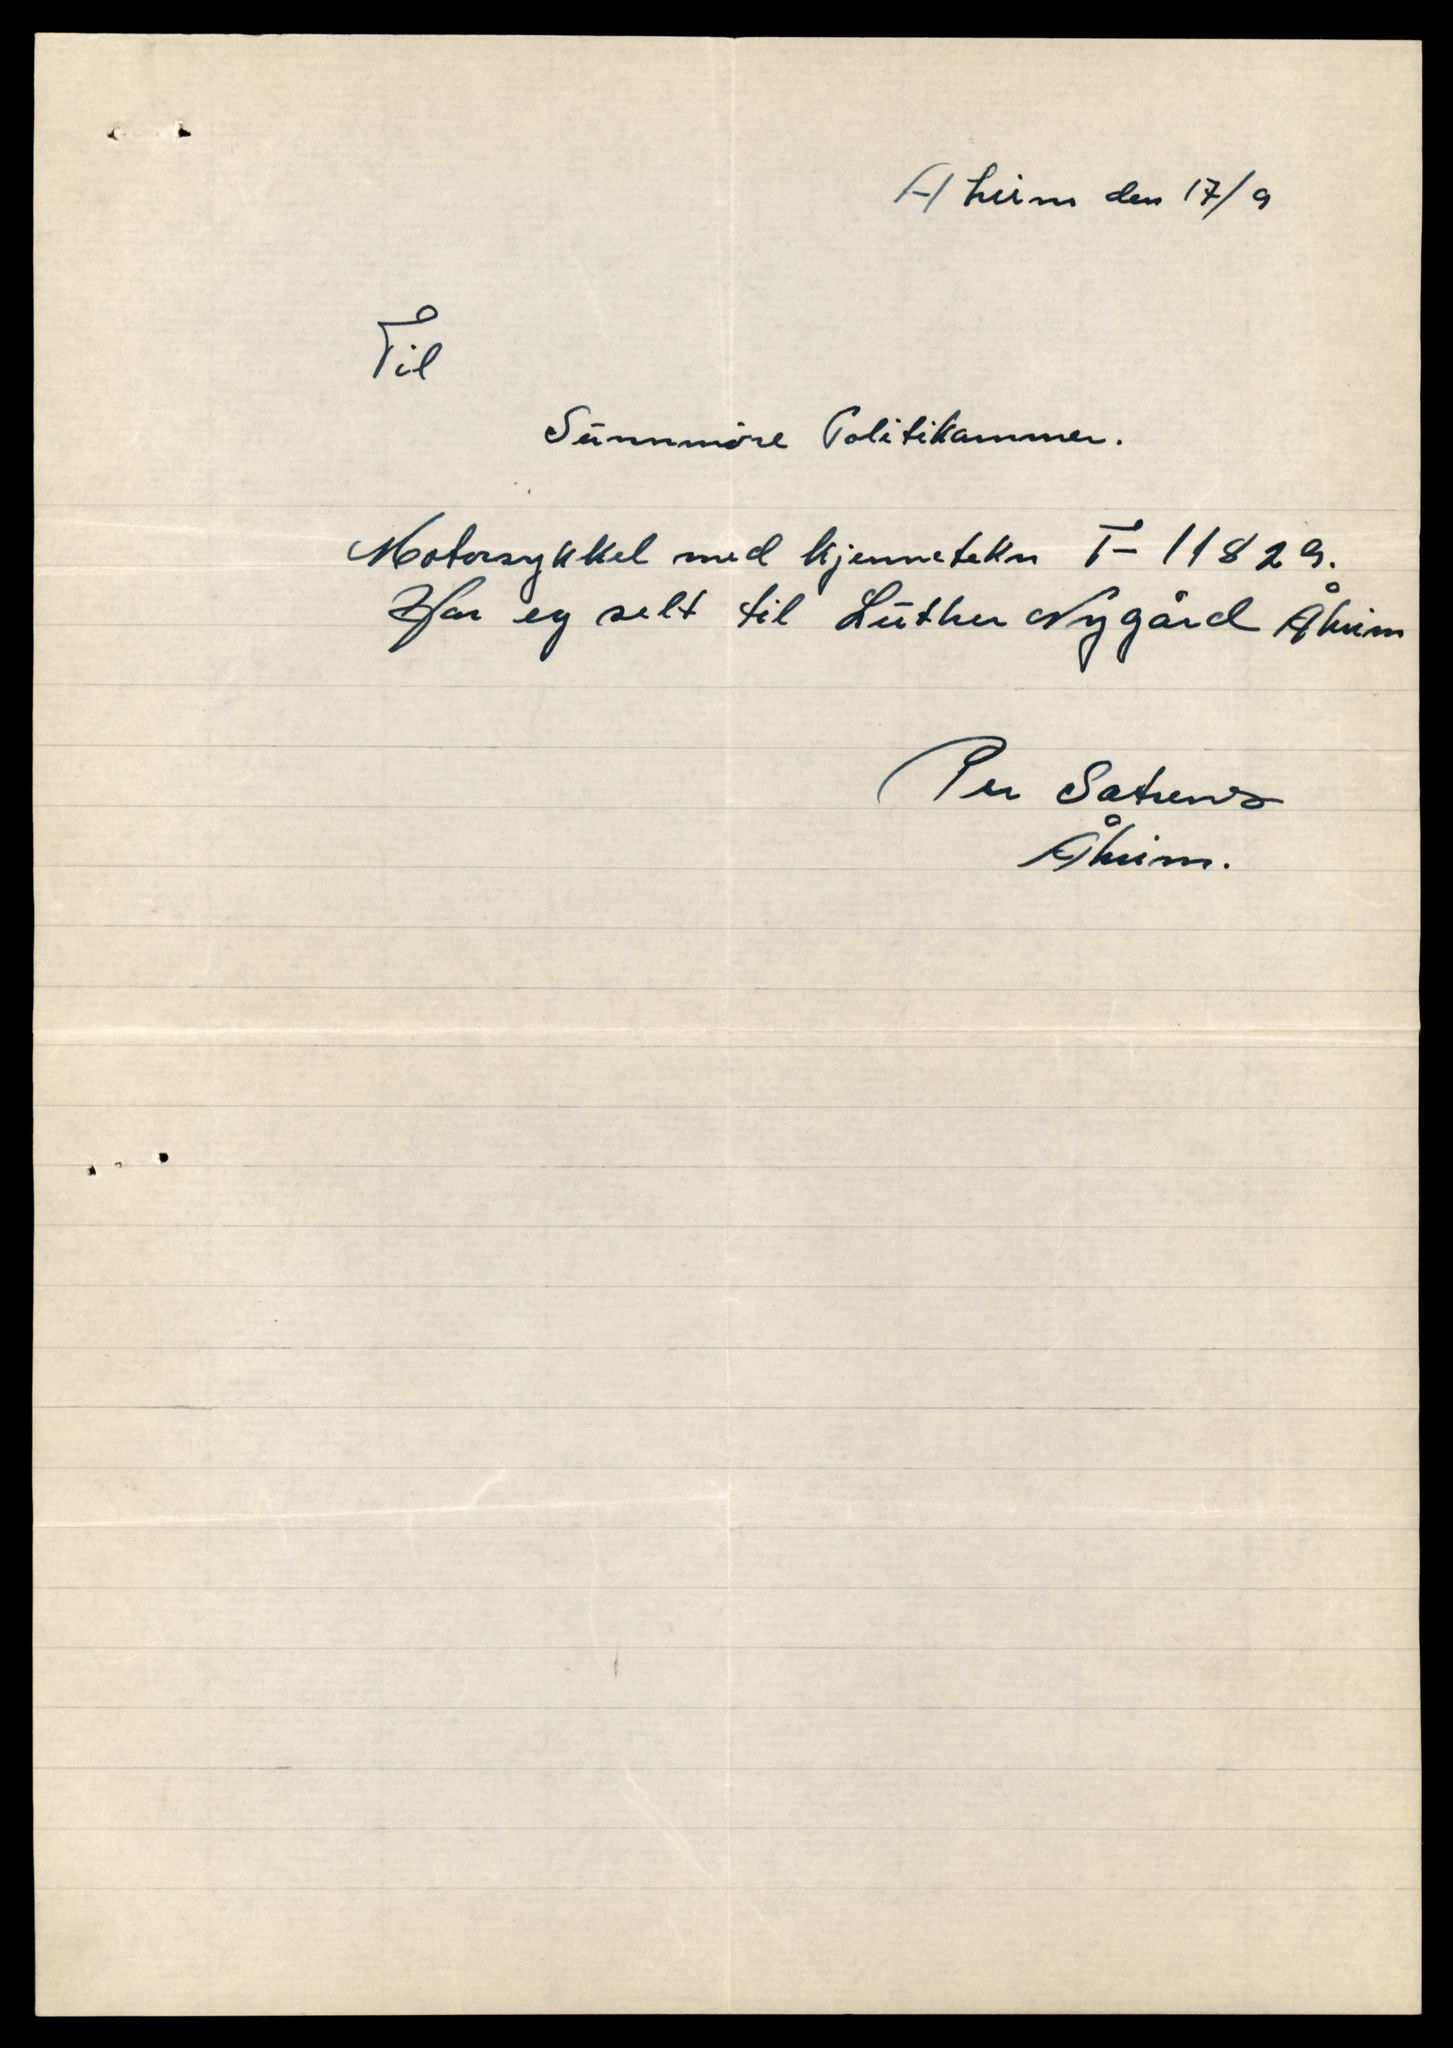 Åheim den 17/9
Til
Sunnmöre Politikammer.
Motorsykkel med kjennetekn T- 11829.
Har eg selt til Luther Nygård Åheim
Per
Åheim.